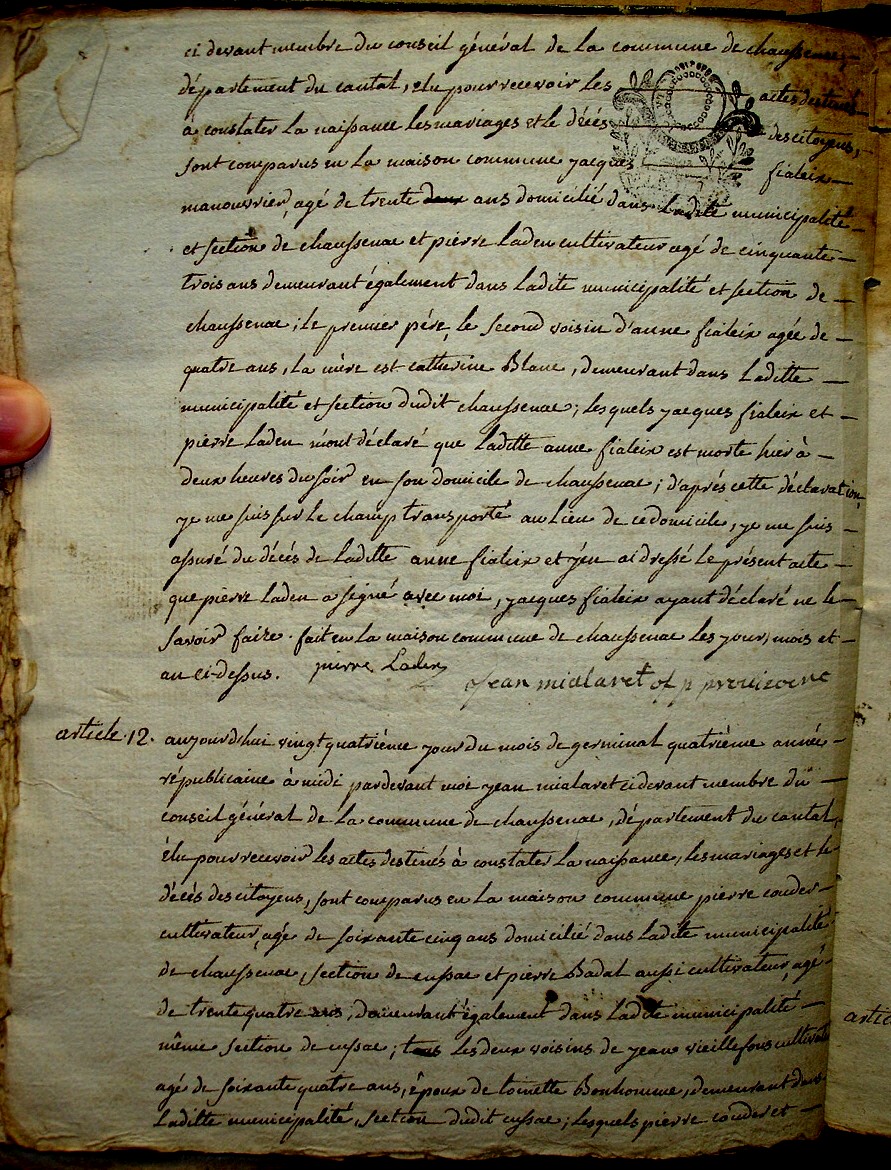 ci devant membre du conseil général de la commune de chaussenac,
département du cantal, élu pour recevoir les actes destinés
à constater la naissance les mariages et le décès des citoyens,
sont comparus en la maison commune jacques fialeix
manouvrier, agé de trente deux ans domicilié dans ladite municipalité
et section de chaussenac et pierre Laden cultivateur agé de cinquante
trois ans demeurant également dans ladite municipalité et section de
chaussenac; le premier pére, le second voisin d'anne fialeix agée de
quatre ans, la mère est catherine Blanc, demeurant dans Laditte
municipalité et section dudit chaussenac; lesquels jacques fialeix et
pierre Laden m'ont déclaré que laditte anne fialeix est morte hier à
deux heures du soir en son domicile de chaussenac; d'aprés cette déclaration,
je me suis sur le champ transporté au lieu de ce domicile, je me suis
assuré du décés de laditte anne fialeix et j'en ai dressé le présent acte
que pierre Laden a signé avec moi, jacques fialeix ayant déclaré ne le
savoir faire. fait en la maison commune de chaussenac les jour, mois et
an ci-dessus. pierre Laden
Jean mialaret of p provisoire
article 12. aujourdhui vingt quatriéme jour du mois de germinal quatriéme année
républicaine à midi pardevant moi jean mialaret ci devant membre du
conseil général de la commune de chaussenac, département du cantal,
élu pour recevoir les actes destinés à constater la naissance, les mariages et le
décès des citoyens, sont comparus en la maison commune pierre couder
cultivateur, agé de soixante cinq ans domicilié dans ladite municipalité
de chaussenac, section de cussac et pierre Badal aussi cultivateur, agé
de trente quatre ans, demeurant également dans ladite municipalité
même section de cussac; tous les deux voisins de jean vieillefons cultivateur
agé de soixante quatre ans, époux de toinette Bonhomme, demeurant dans
Laditte municipalité, section dudit cussac; lesquels pierre couder et